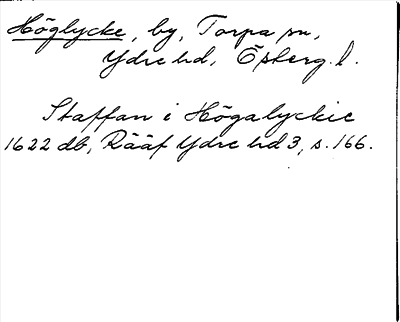 Höglycke, by, Torpa sn,
Ydre hd, Österg. l.
Staffan i Högalyckie
1622 db, Rääf Ydre hd 3, s. 166.